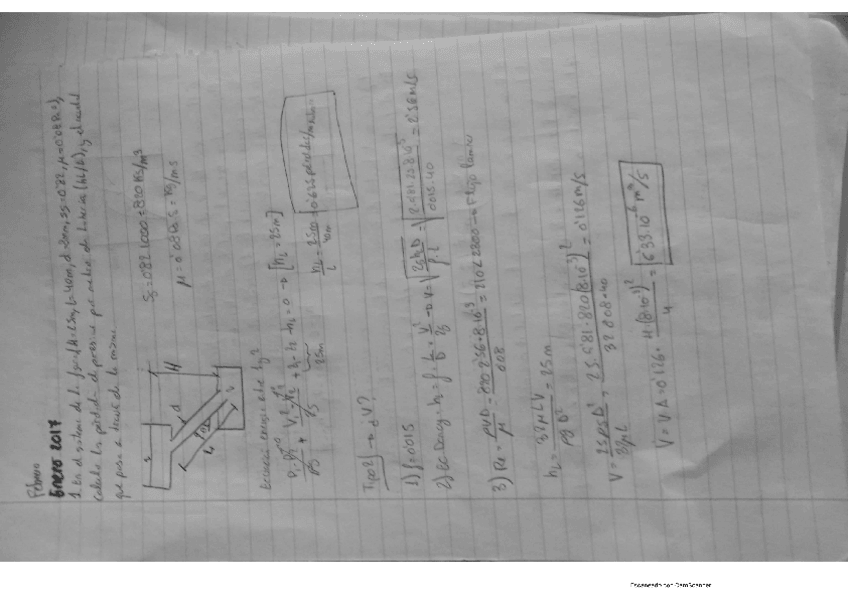 Febrero
Enero 2017
1. En el sistema de la figura H=25m, L=40m, d=8mm, s=0'82, μ=0'08
calcular la pérdida de presión por metro de tubería (hL/L), y el caudal
que pasa a través de la misma.
H
d
L
S=0'82·1000=820 kg/m³
μ=0'08 = kg/ms
Ecuación energía
+ z₁ - z₂ - hL = 0 → [hL = 25m]
25m
hL/L = 25m/40m = 0'625
Tipo 2 → ¿V?
1) f=0'015
2) Ec. Darcy: hL = f · L/D · V²/2g → V = √(2ghD/f·L) = √(2·9'81·25·8·10⁻³/0'015·40) = 2'56 m/s
3) Re = ρVD/μ = 820·2'56·8·10⁻³/0'08 = 210 < 2300 → Flujo laminar
hL = 32μLV/ρgD² = 25m
V = 25ρgD²/32μL = 25·9'81·820(8·10⁻³)²/32·0'08·40 = 0'126 m/s
V = V·A = 0'126 · π(8·10⁻³)²/4 = 6'33·10⁻⁶ m³/s
Escaneado con CamScanner